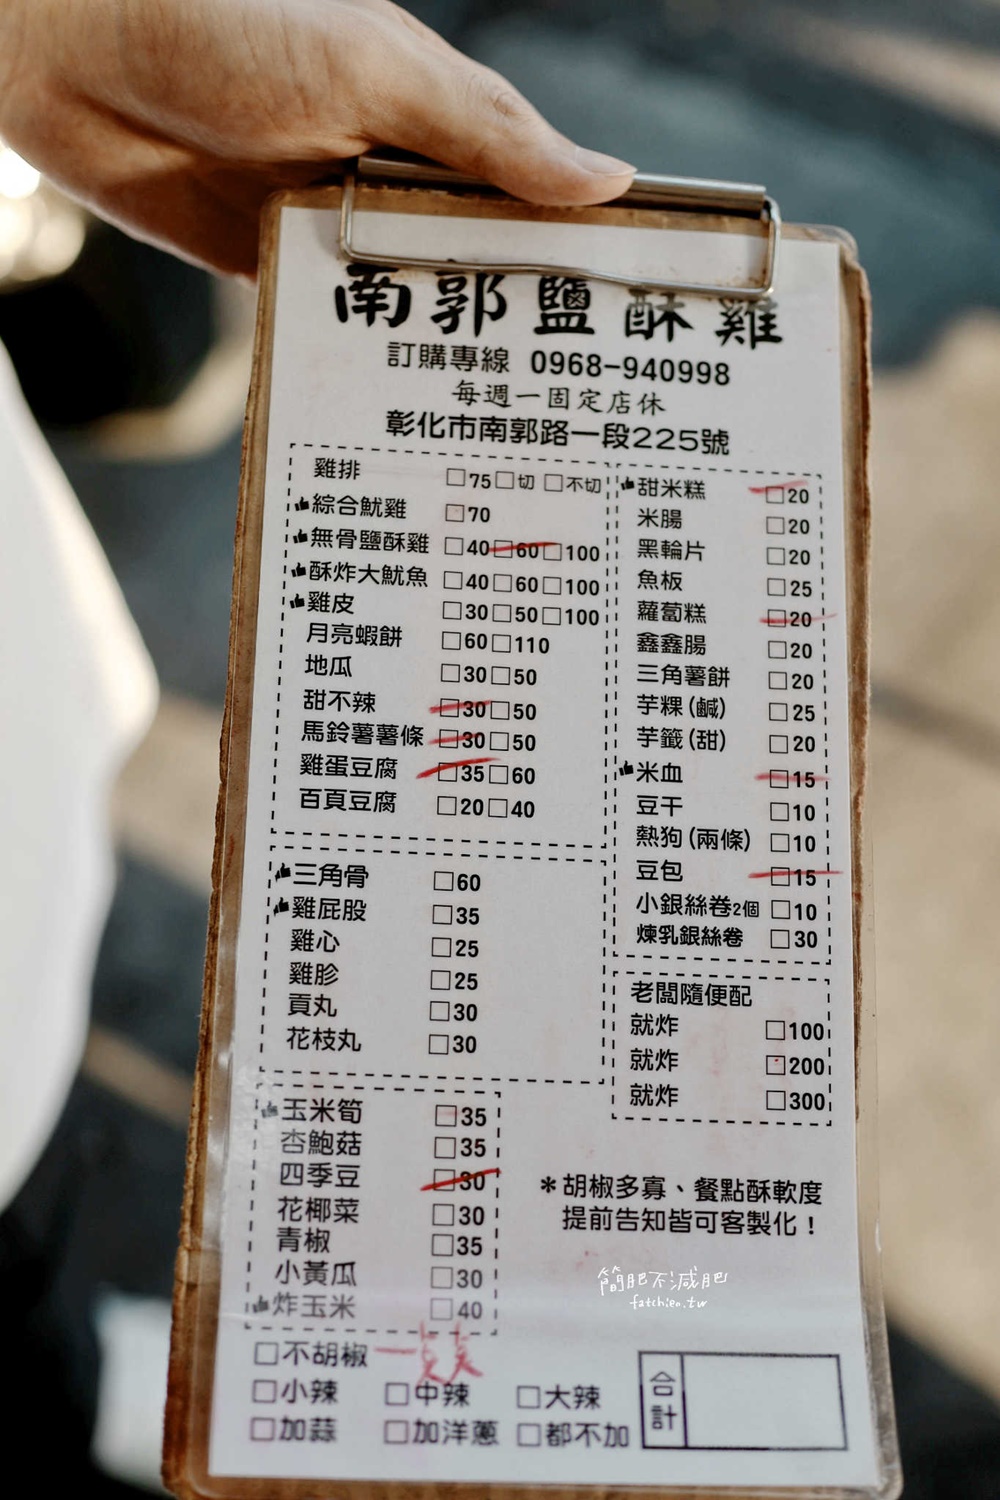 南郭鹽酥雞
訂購專線 0968-940998
每週一固定店休
彰化市南郭路一段225號
雞排 □75□切 □不切
綜合魷雞 □70
無骨鹽酥雞 □40□60□100
酥炸大魷魚 □40□60□100
雞皮 □30□50□100
月亮蝦餅 □60□110
地瓜 □30□50
甜不辣 □30□50
馬鈴薯薯條 □30□50
雞蛋豆腐 □35□60
百頁豆腐 □20□40
三角骨 □60
雞屁股 □35
雞心 □25
雞胗 □25
貢丸 □30
花枝丸 □30
玉米筍 □35
杏鮑菇 □35
四季豆 □30
花椰菜 □30
青椒 □35
小黃瓜 □30
炸玉米 □40
甜米糕 □20
米腸 □20
黑輪片 □20
魚板 □25
蘿蔔糕 □20
鑫鑫腸 □20
三角薯餅 □20
芋粿(鹹) □25
芋籤(甜) □20
米血 □15
豆干 □10
熱狗(兩條) □10
豆包 □15
小銀絲卷2個 □10
煉乳銀絲卷 □30
老闆隨便配
就炸 □100
就炸 □200
就炸 □300
*胡椒多寡、餐點酥軟度
提前告知皆可客製化!
簡肥不減肥
fatchien.tw
□不胡椒 一點點
□小辣 □中辣 □大辣
□加蒜 □加洋蔥 □都不加
合計